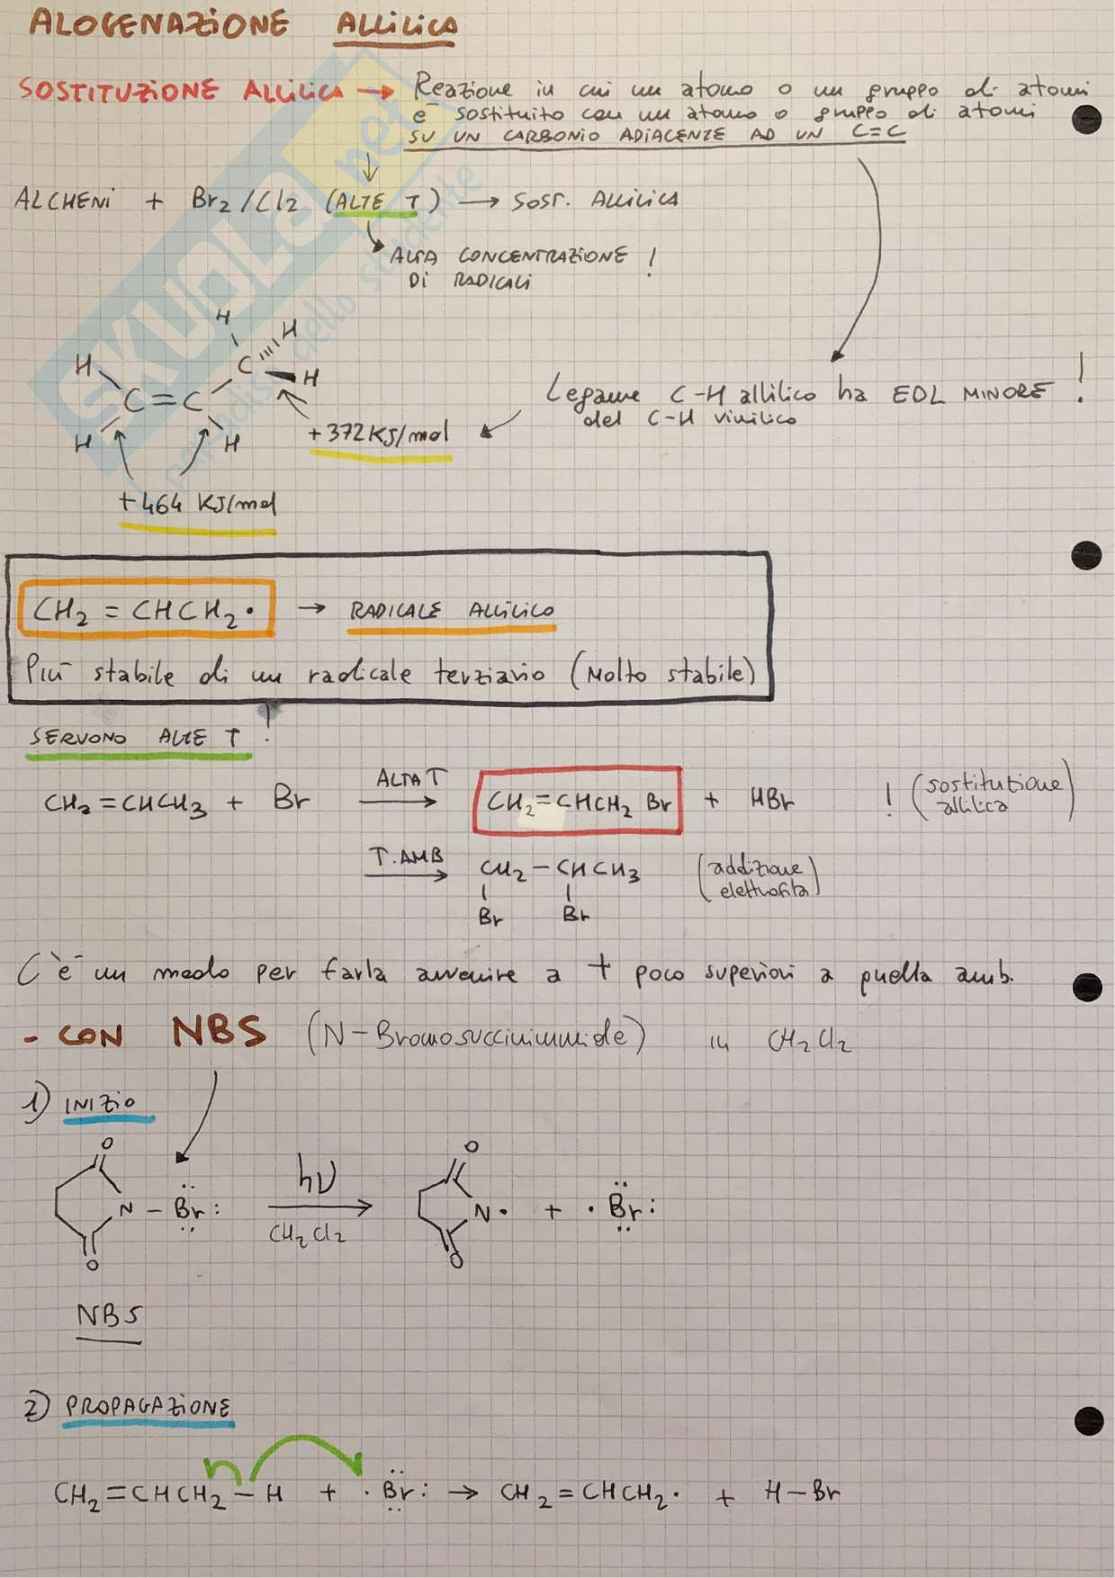 ALOGENAZIONE ALLILICA
SOSTITUZIONE ALLILICA → Reazione in cui un atomo o un gruppo di atomi
è sostituito con un atomo o gruppo di atomi
SU UN CARBONIO ADIACENTE AD UN C=C
ALCHENI + Br2/Cl2 (ALTE T) → SOST. ALLILICA
ALTA CONCENTRAZIONE !
DI RADICALI
H H
H C H
C=C
H H
Legame C-H allilico ha EDL MINORE !
del C-H vinilico
+372 KJ/mol
+464 KJ/mol
CH2 = CHCH2• → RADICALE ALLILICO
Più stabile di un radicale terziario (Molto stabile)
SERVONO ALTE T !
CH2=CHCH3 + Br ALTA T CH2=CHCH2 Br + HBr ! (sostituzione allilica)
T. AMB CH2-CHCH3 (addizione elettrofila)
Br Br
C'è un modo per farla avvenire a t poco superiori a quella amb.
- CON NBS (N-Bromosuccinimmide) in CH2Cl2
1) INIZIO
O O
N-Br: hν N• + •Br:
CH2Cl2
O O
NBS
2) PROPAGAZIONE
CH2=CHCH2-H + •Br: → CH2=CHCH2• + H-Br
SKUOLA.net